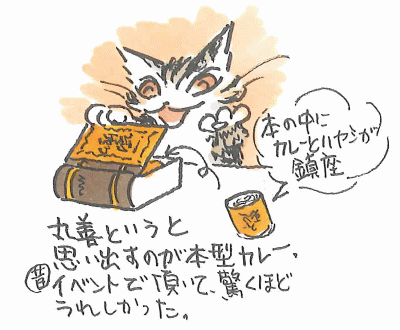 本の中に
カレーとハヤシが
鎮座
丸善というと
思い出すのが本型カレー。
昔イベントで頂いて、驚くほど
うれしかった。